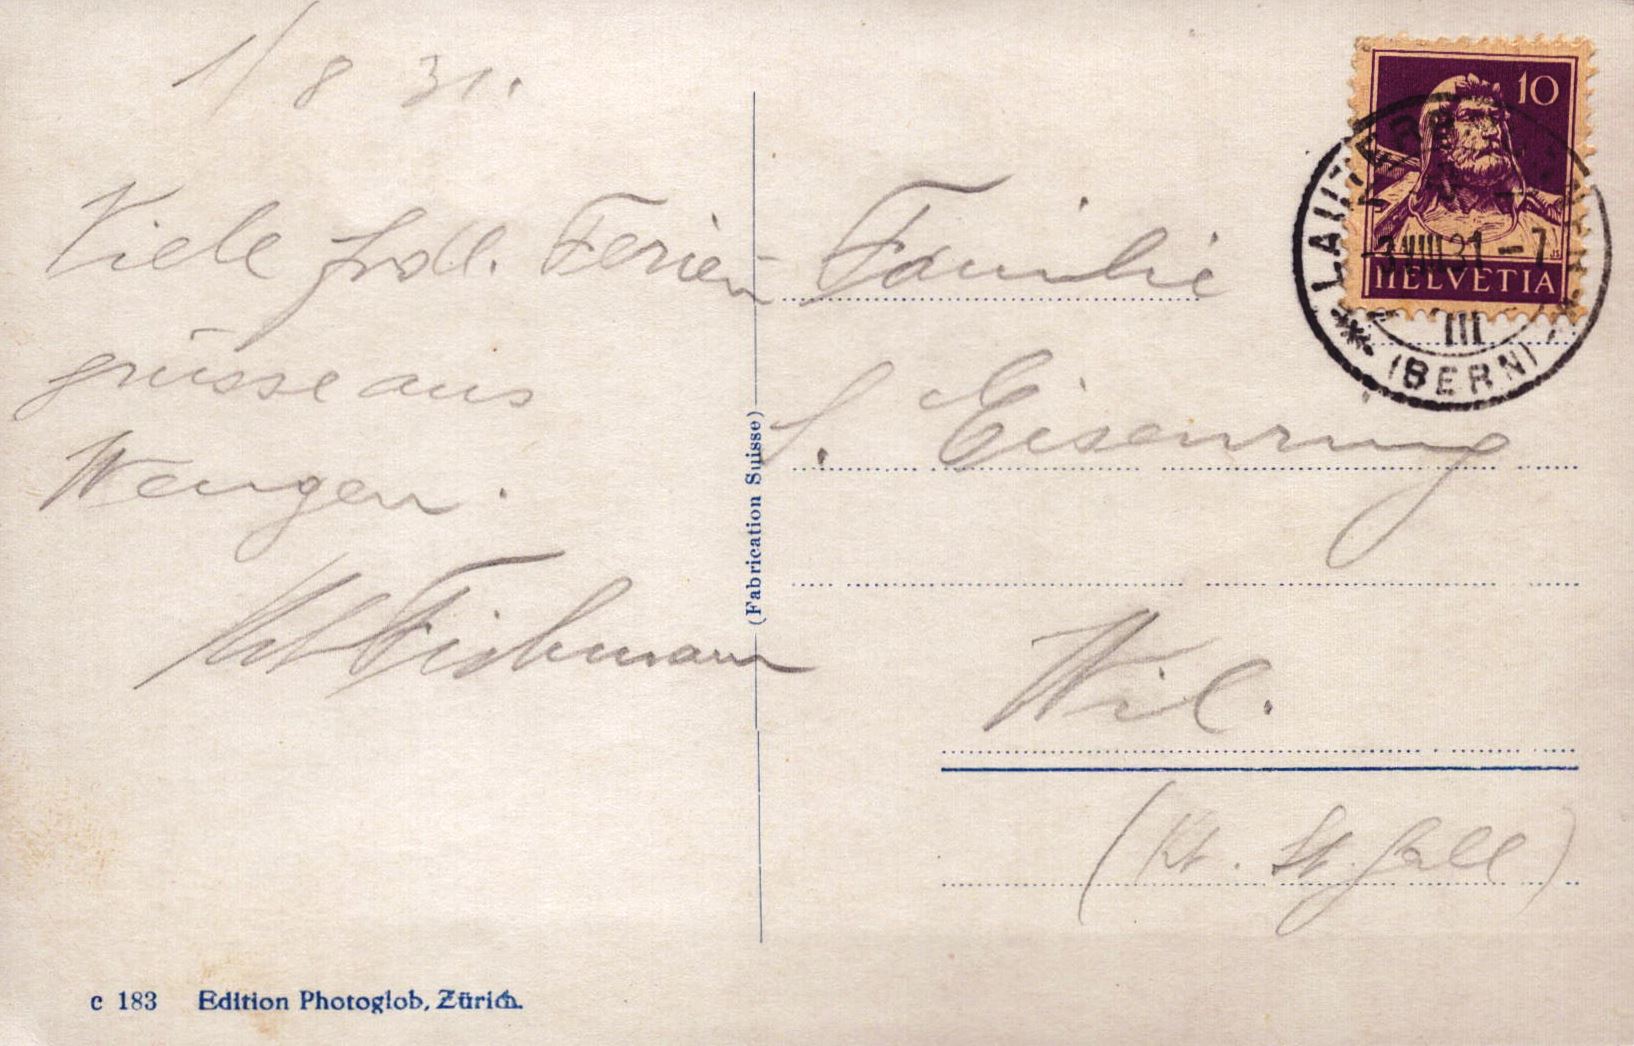 1/8 31.
Viele frdl. Ferien-
grüsse aus
Wengen.
Fischmann
Familie
S. Eisenring
Wil.
(Kt. St. Gall)
(Fabrication Suisse)
c 183 Edition Photoglob, Zürich.
10
HELVETIA
3.VIII.31-7
III
(BERN)